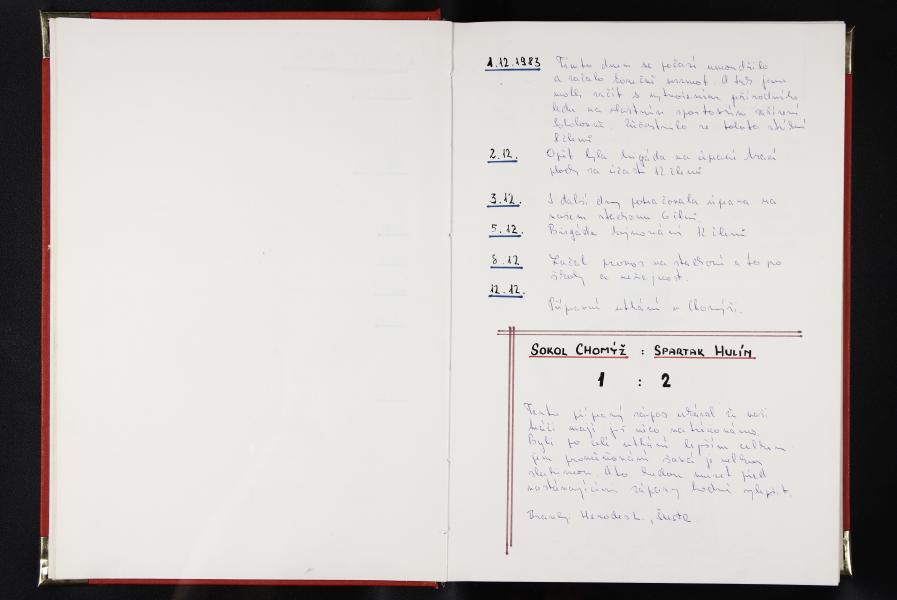 1.12.1983 Tímto dnem se počasí umoudřilo
a začalo konečně mrznout. A tak jsme
mohli začít s vytvořením přírodního
ledu na vlastním sportovním zařízení
. Zúčastnilo se tohoto
8 členů
2.12. Opět byla brigáda na úpravě hrací
plochy za účasti 12 členů
3.12. I další dny pokračovala úprava na
našem stadionu 6 členů
5.12. Brigáda 12 členů
8.12 Začal provoz na stadioně a to pro
školy a veřejnost.
12.12.
Přípravné utkání v Chomýži.
SOKOL CHOMÝŽ : SPARTAK HULÍN
1 : 2
Tento přípravný zápas ukázal že naši
hráči mají již něco natrénováno.
Byli po celé utkání lepším celkem
jen proměňování šancí je velkou
slabinou. A to budou muset před
nastávajícími zápasy hodně vylepšit.
Branky Herodes L., Šusta